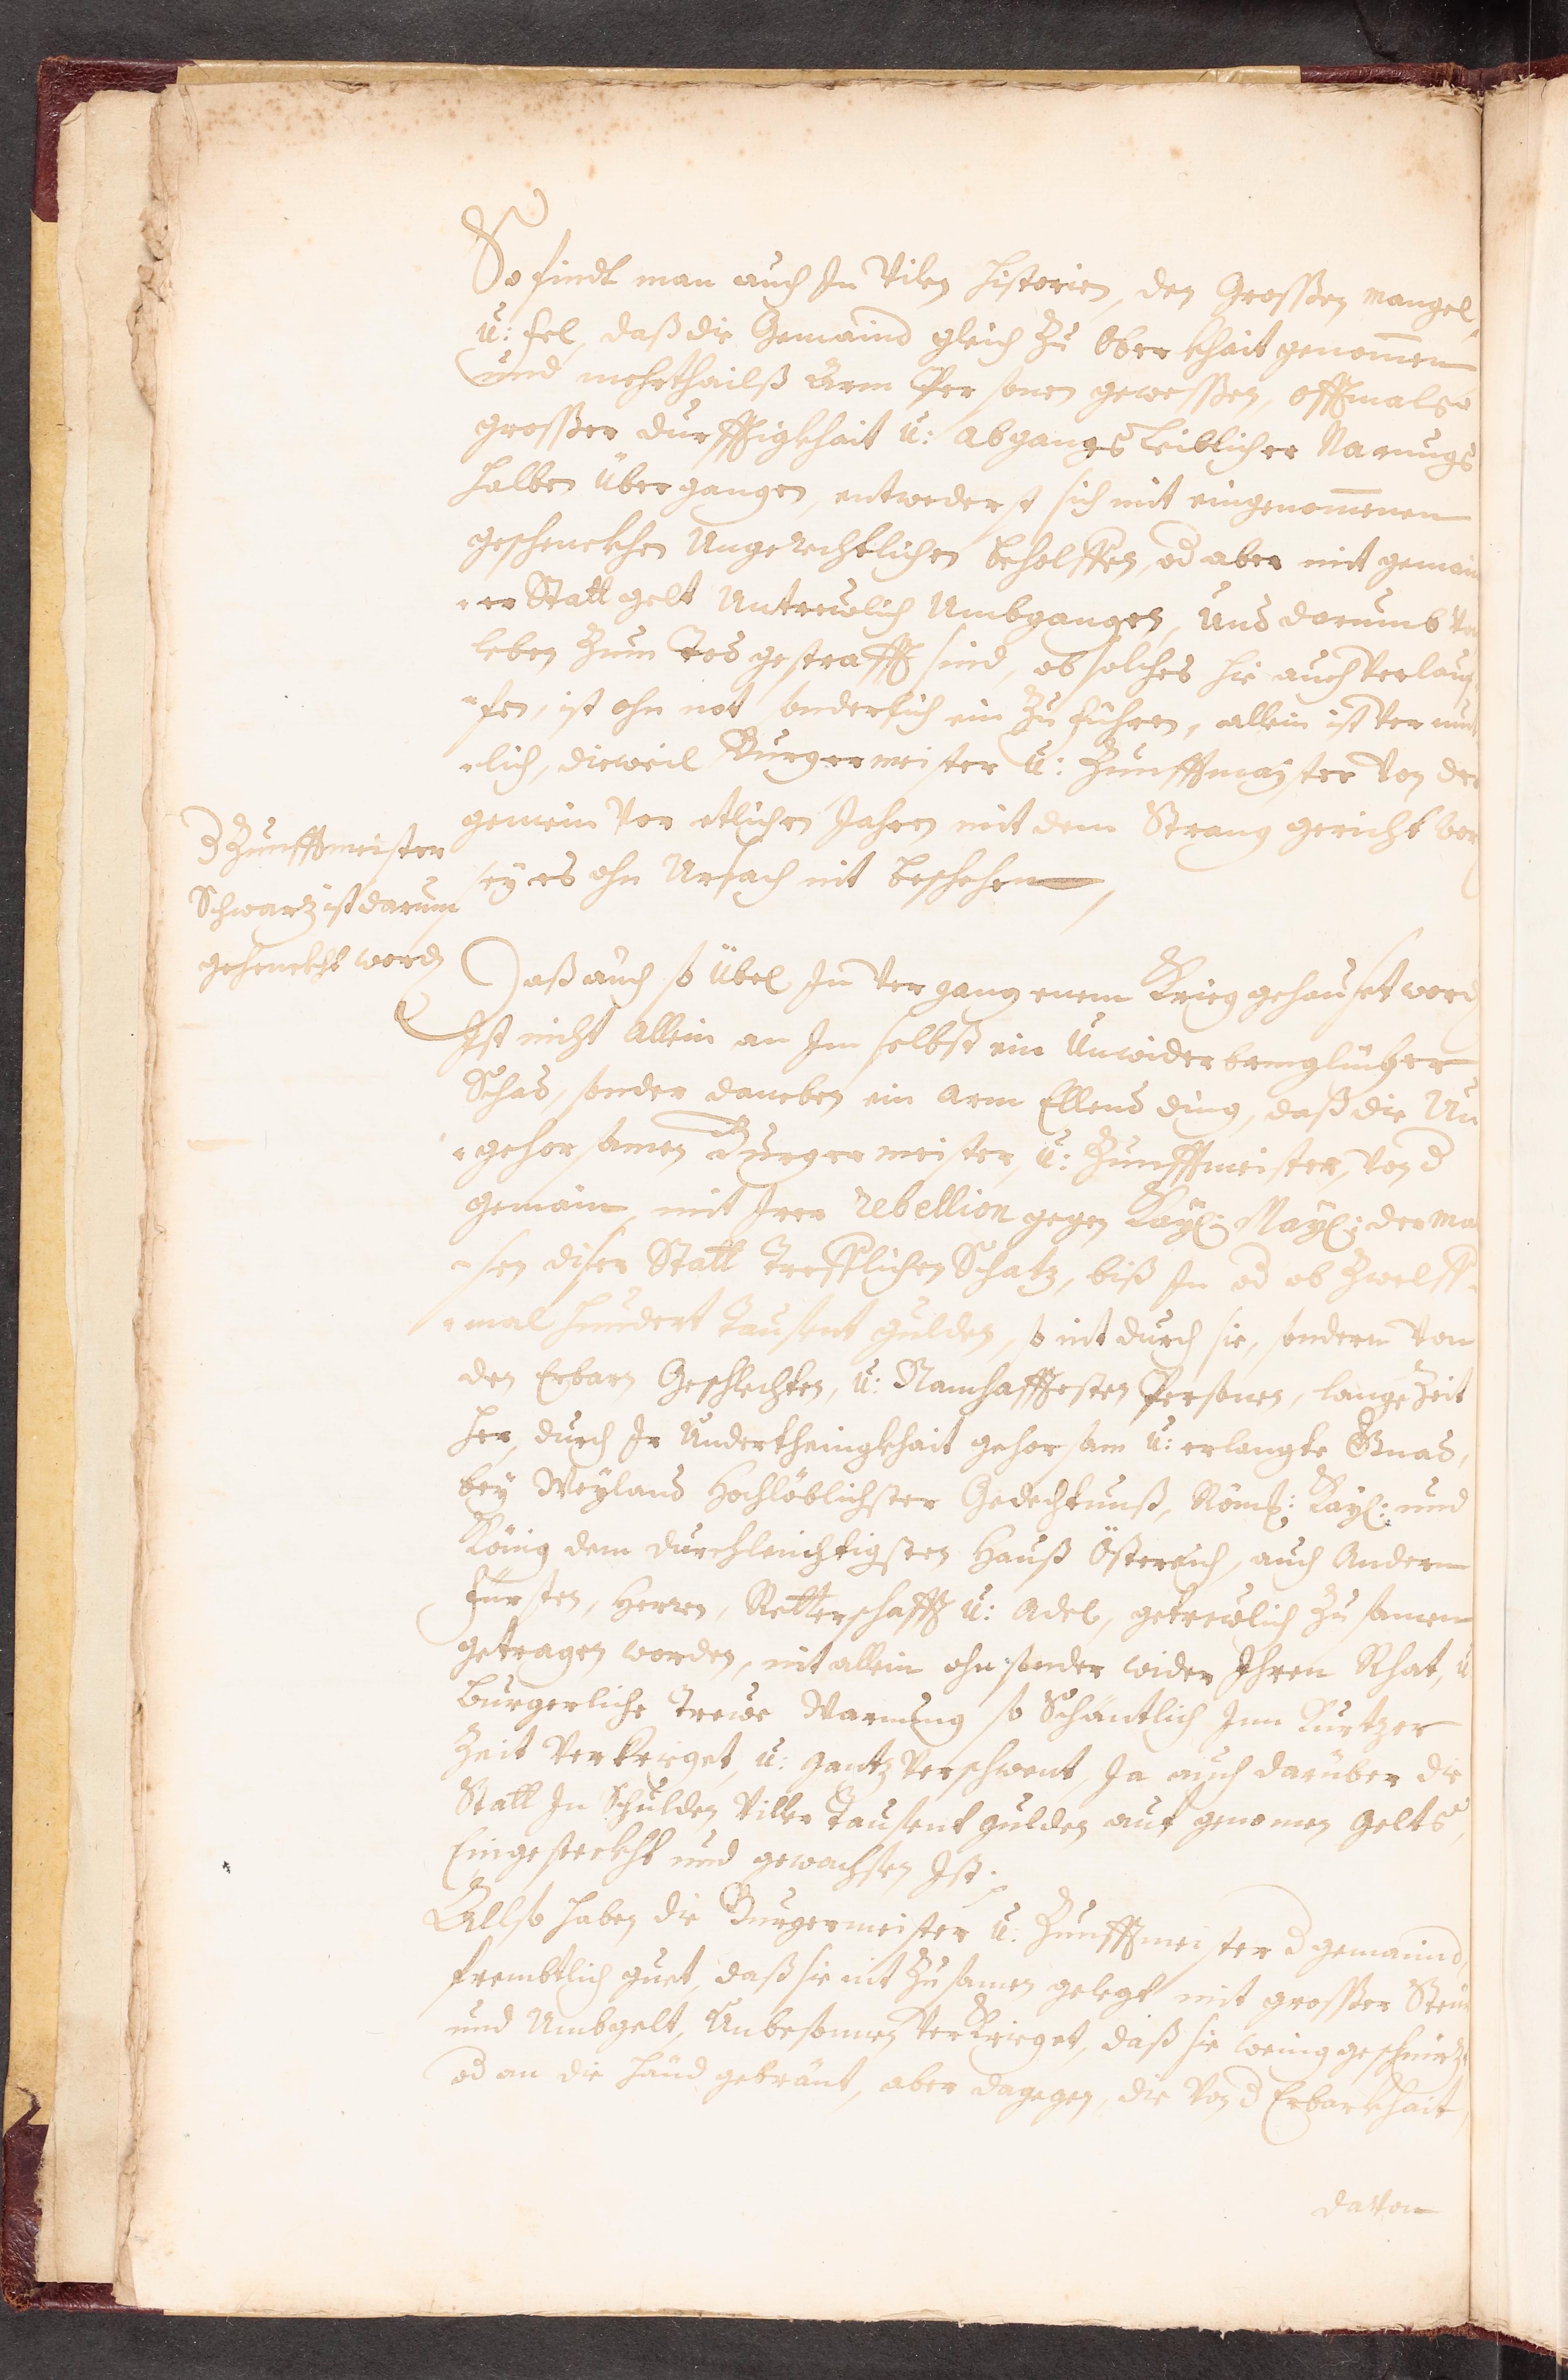 So findt man auch In Vilen Historien, den Grossen mangel,
u: fel, daß die Gemaind gleich zu Oberkhait genommen
und mehrthailß Arm Personen gewessen, offtmals
grosser durfftigkhait u: abgangs leiblicher Narungs
halben ubergangen, entwederst sich mit eingenommenen
geschenckhen Ungerechtlichen beholffen, od aber mit gemain
-er Statt gelt Untrewlich Umbgangen, Und darumb vom
leben zum Tod gestrafft sind, ob solches hie auch verlauf-
-fen, ist ohn not sonderlich ein zu führen, allein ist vermut
-lich, dieweil Burgermeister u: Zunfftmayster von der
gemein vor etlichen Jahren mit dem Strang gericht wor
sey es ohn Ursach nit beschehen
d Zunfftmeister
Schwartz ist darum
gehenckht word
Daß auch so übel In vergangenem Krieg gehauset word
Ist nicht allein an Im selbst ein Unwiderbringlicher
Schad, sonder daneben ein arm Ellend ding, daß die Un
-gehorsamen Burgermeister, u: Zunfftmeister, von d
gemain, mit Irer rebellion gegen Kayl: Mayl: der ma
-sen diser Statt Trefflichen Schatz, biß In od ob zwelff-
-mal hundert Tausent gulden, so nit durch sie, sondern von
den Erbarn Geschlechten, u: Namhafftesten Personen, lange Zeit
her, durch Ir Underthenigkhait gehorsam u: erlangte Gnad,
bey Weyland Hochlöblichster Gedechtnuß, Röms: Kayl: und
König dem durchleichtigsten Hauß Österreich, auch Andern
Fürsten, Herren, Ritterschafft u: Adel, getrewlich zu samen
getragen worden, nit allein ohn sonder wider Ihren Rhat, u
Burgerliche Trewe Warnung so Schantlich Inn Kurtzer
Zeit verkrieget, u: gantz verschwent, Ja auch darüber die
Statt In Schulden Viller Tausent gulden auf genomen Gelts,
Eingesteckht und gewachsen Ist.
Allso haben die Burgermeister u: Zunfftmeister d gemaind,
frembtlich guet, daß sie nit zusamen gelegt mit grosser Steur
und Umbgelt, Unbesonnen verkrieget, daß sie wenig geschmirtzt
od an die händ gebränt, aber dagegen, die von d Erbarkhait,
davon